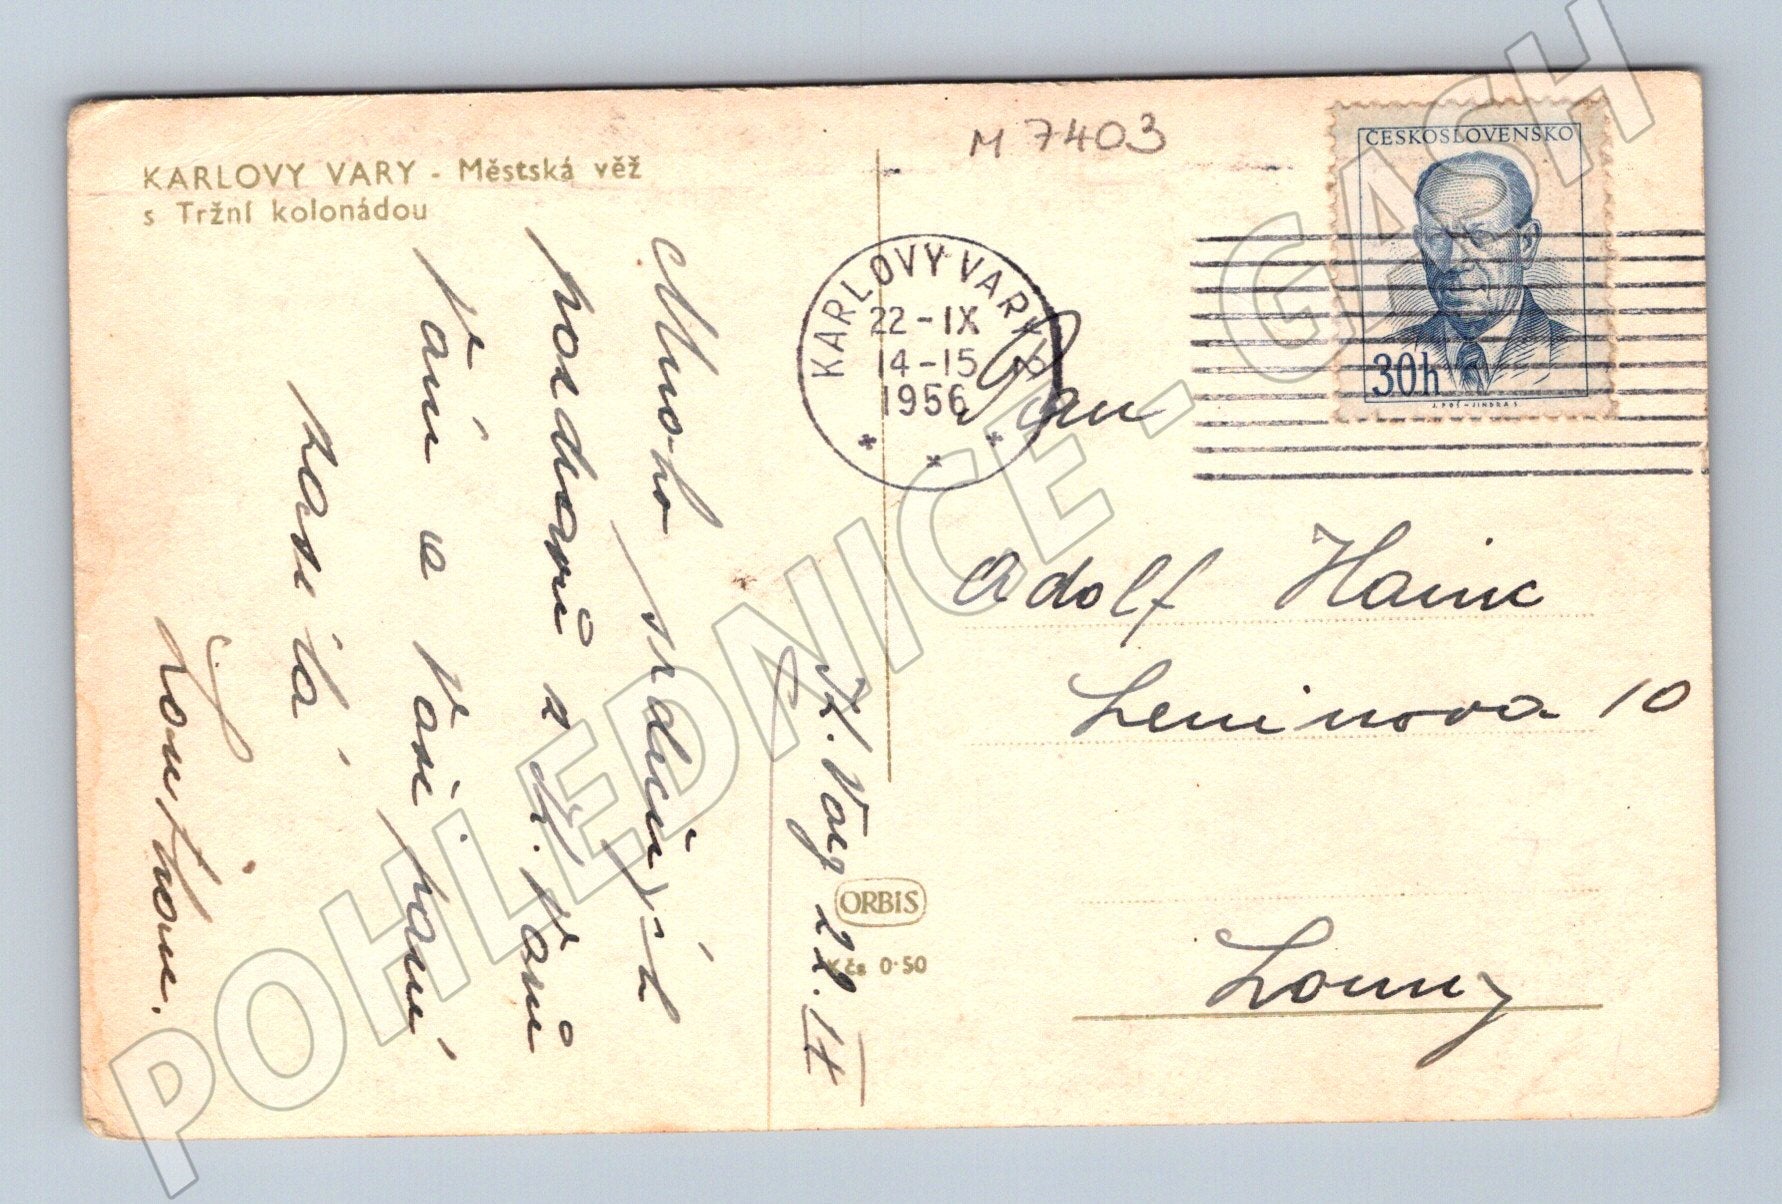 KARLOVY VARY - Městská věž
s Tržní kolonádou
M 7403
ČESKOSLOVENSKO
30h
KARLOVY VARY
22-IX
14-15
1956
Pan
Adolf
Leninova 10
Louny
K. Vary 22. IX
Mnoho srdečných
pozdravů z K. Varů
Vám a Vaší paní
zasílá
ORBIS
Kčs 0·50
POHLEDNICE - GASH